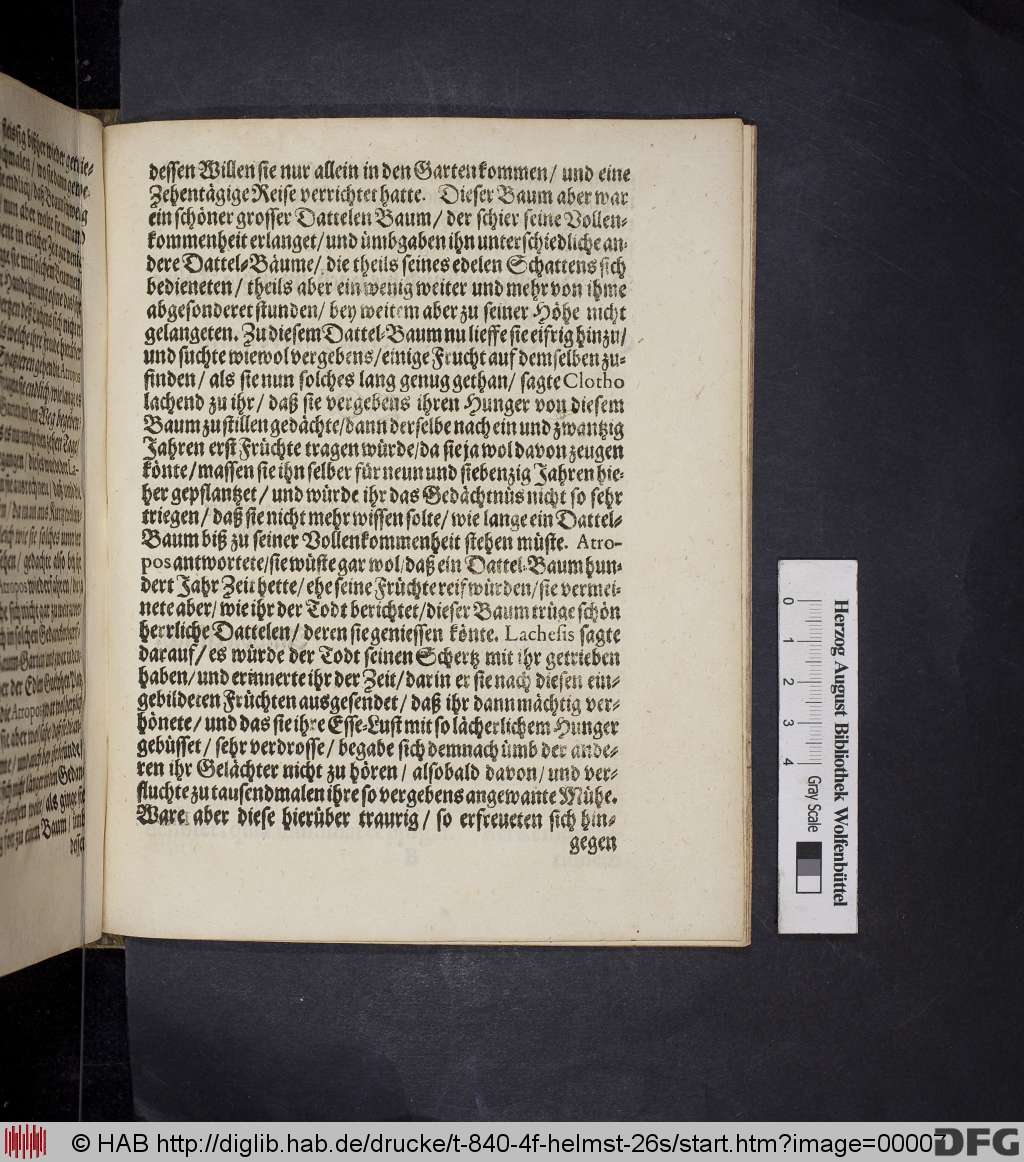 dessen Willen sie nur allein in den Garten kommen/ und eine
Zehentägige Reise verrichtet hatte. Dieser Baum aber war
ein schöner grosser Dattelen Baum/ der schier seine Vollen-
kommenheit erlanget/ und ümbgaben ihn unterschiedliche an-
dere Dattel-Bäume/ die theils seines edelen Schattens sich
bedieneten/ theils aber ein wenig weiter und mehr von ihme
abgesonderet stunden/ bey weitem aber zu seiner Höhe nicht
gelangeten. Zu diesem Dattel-Baum nu lieffe sie eifrig hinzu/
und suchte wiewol vergebens/ einige Frucht auf demselben zu-
finden/ als sie nun solches lang genug gethan/ sagte Clotho
lachend zu ihr/ daß sie vergebens ihren Hunger von diesem
Baum zu stillen gedächte/ dann derselbe nach ein und zwantzig
Jahren erst Früchte tragen würde/ da sie ja wol davon zeugen
könte/ massen sie ihn selber für neun und siebenzig Jahren hie-
her gepflantzet/ und würde ihr das Gedächtnüs nicht so sehr
triegen/ daß sie nicht mehr wissen solte/ wie lange ein Dattel-
Baum biß zu seiner Vollenkommenheit stehen müste. Atro-
pos antwortete/ sie wüste gar wol/ daß ein Dattel-Baum hun-
dert Jahr Zeit hette/ ehe seine Früchte reif würden/ sie vermei-
nete aber/ wie ihr der Todt berichtet/ dieser Baum trüge schön
herrliche Dattelen/ deren sie geniessen könte. Lachesis sagte
darauf/ es würde der Todt seinen Schertz mit ihr getrieben
haben/ und erinnerte ihr der Zeit/ darin er sie nach diesen ein-
gebildeten Früchten ausgesendet/ daß ihr dann mächtig ver-
hönete/ und das sie ihre Esse-Lust mit so lächerlichem Hunger
gebüsset/ sehr verdrosse/ begabe sich demnach ümb der ande-
ren ihr Gelächter nicht zu hören/ alsobald davon/ und ver-
fluchte zu tausendmalen ihre so vergebens angewante Mühe.
Ware aber diese hierüber traurig/ so erfreueten sich hin-
gegen
0 1 2 3 4
Herzog August Bibliothek Wolfenbüttel
Gray Scale
© HAB http://diglib.hab.de/drucke/t-840-4f-helmst-26s/start.htm?image=00007
DFG